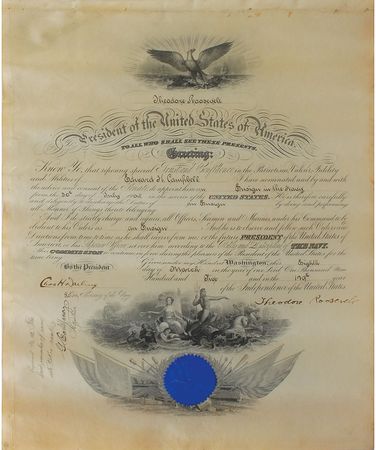 Theodore Roosevelt
President of the United States of America.
TO ALL WHO SHALL SEE THESE PRESENTS,
Greeting:
Know Ye, that reposing special Trust and Confidence in the Patriotism, Valor, Fidelity
and Abilities of Edward H. Campbell I have nominated and by and with
the advice and consent of the Senate do appoint him an Ensign in the Navy
from the day of July in the service of the UNITED STATES. He is therefore carefully
and diligently to discharge the duties of an Ensign by doing and performing
all Manner of things thereto belonging.
And I do strictly charge and require all Officers, Seamen and Marines under his Command to be
obedient to his Orders as an Ensign And he is to observe and follow such Orders and
Directions from time to time as he shall receive from me, or the future PRESIDENT of the United States of
America, or his Superior Officer set over him, according to the Rules and Discipline of THE NAVY.
This COMMISSION to continue in force during the pleasure of the President of the United States for the
time being.
Given under my Hand at Washington, this Eighth
day of March in the year of our Lord One Thousand Nine
Hundred and Five and in the year
of the Independence of the United States
By the President
Theodore Roosevelt
Secretary of the Navy